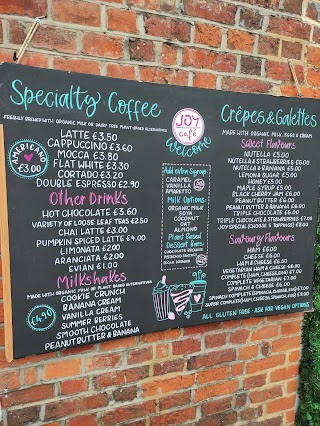 Specialty Coffee
FRESHLY BREWED WITH ORGANIC MILK OR DAIRY FREE PLANT-BASED ALTERNATIVES
AMERICANO
£3.00
LATTE £3.50
CAPPUCCINO £3.60
MOCCA £3.80
FLAT WHITE £3.30
CORTADO £3.20
DOUBLE ESPRESSO £2.90
Other Drinks
HOT CHOCOLATE £3.60
VARIETY OF LOOSE LEAF TEAS £2.50
CHAI LATTE £3.00
PUMPKIN SPICED LATTE £4.00
LIMONATA £2.00
ARANCIATA £2.00
EVIAN £1.00
Milkshakes
MADE WITH ORGANIC MILK OR PLANT BASED ALTERNATIVES
£4.90
COOKIE CRUNCH
BANANA CREAM
VANILLA CREAM
SUMMER BERRIES
SMOOTH CHOCOLATE
PEANUT BUTTER & BANANA
JOY
café
Welcome
Add extra Syrup:
CARAMEL
VANILLA
AMARETTO
Milk Options:
ORGANIC MILK
SOYA
COCONUT
OAT
ALMOND
Plant Based
Dessert Bars:
CHOCOLATE BROWNIE
PISTACHIO
Crêpes & Galettes
MADE WITH ORGANIC MILK, EGGS & CREAM
Sweet Flavours
NUTELLA £5.00
NUTELLA & STRAWBERRIES £6.00
NUTELLA & BANANA £6.00
LEMON & SUGAR £5.00
HONEY £5.00
MAPLE SYRUP £5.00
BLACK CHERRY JAM £6.00
PEANUT BUTTER £6.00
PEANUT BUTTER & BANANA £6.00
TRIPLE CHOCOLATE £6.00
TRIPLE CHOCOLATE & STRAWBERRIES £7.00
JOY SPECIAL (CHOOSE 3 TOPPINGS) £8.00
Savoury Flavours
HAM £6.00
CHEESE £6.00
HAM & CHEESE £6.00
VEGETARIAN HAM & CHEESE £6.00
COMPLETE (HAM, CHEESE, EGG) £7.00
VEGETARIAN COMPLETE £7.00
SPINACH & CHEESE £6.00
SPINACH COMPLETE (SPINACH, CHEESE, EGG) £7.00
SUPER COMPLETE (HAM, CHEESE, SPINACH, EGG) £8.00
ALL GLUTEN FREE • ASK FOR VEGAN OPTIONS